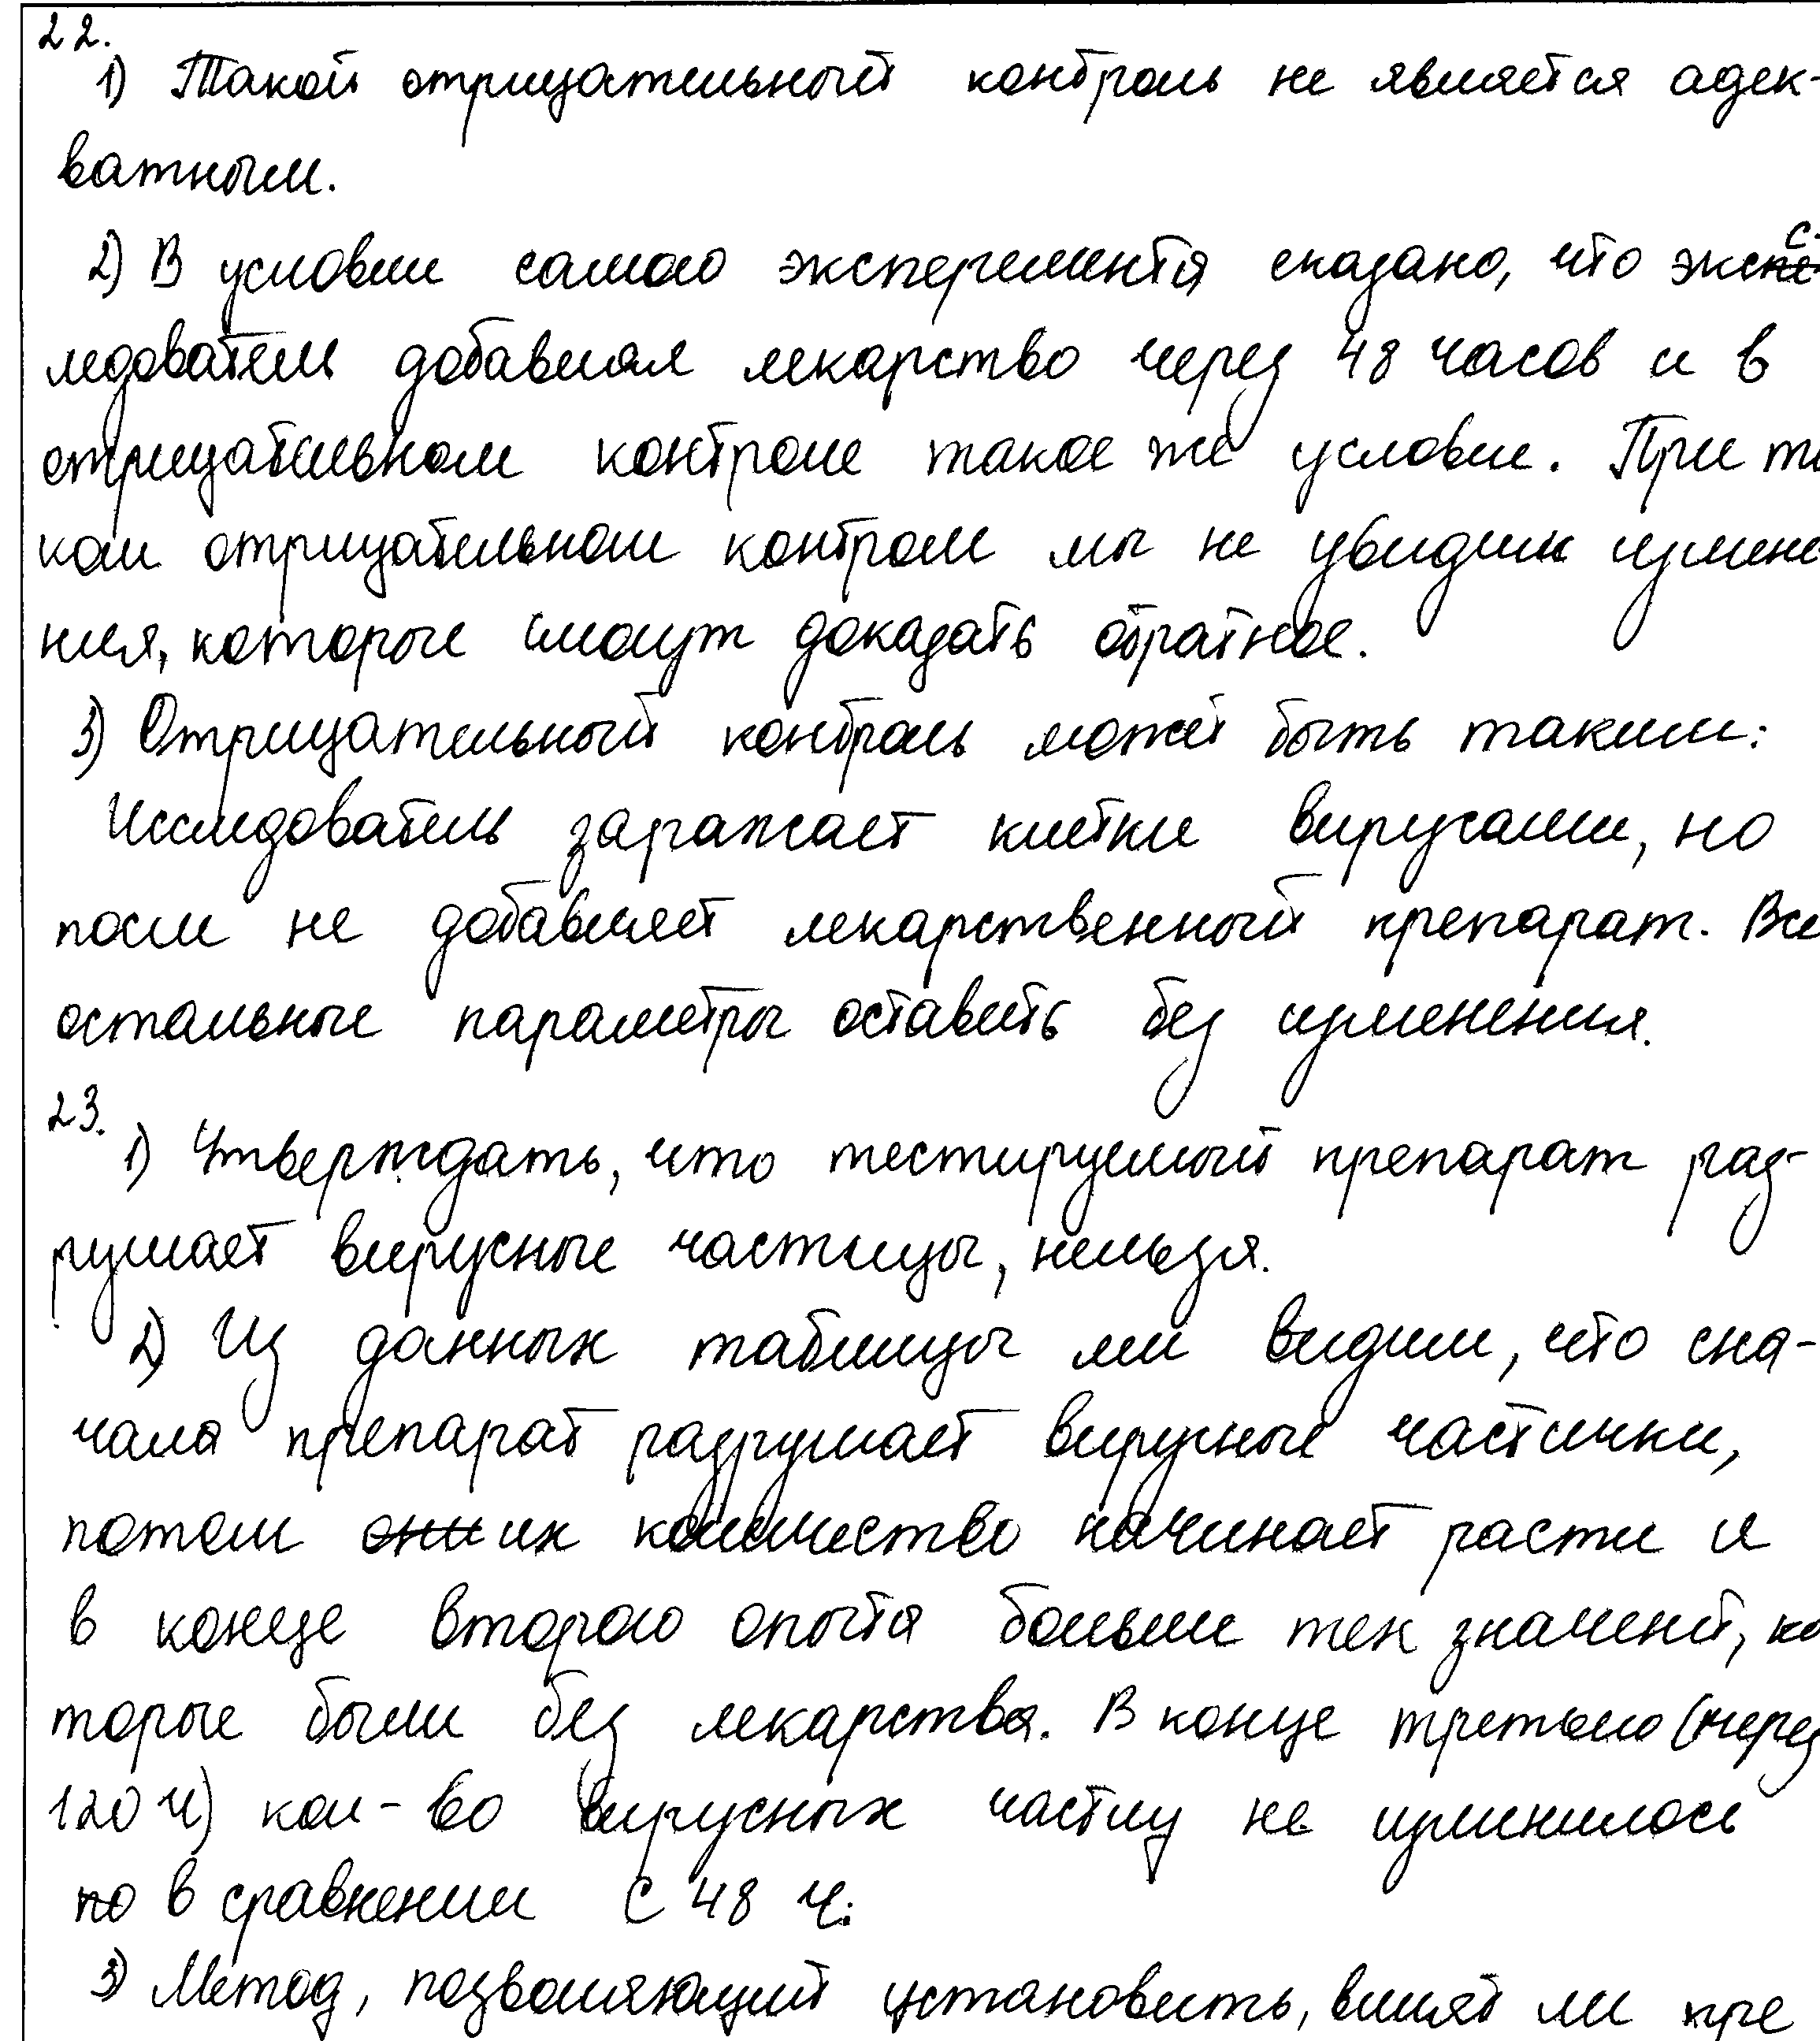 22.
1) Такой отрицательный контроль не является адек-
ватным.
2) В условии самого эксперемента сказано, что экспе с
ледователь добавлял лекарство через 48 часов и в
отрицательном контроле такое же условие. При та
ком отрицательном контроле мы не увидим измене
ния, которые смогут доказать обратное.
3) Отрицательный контроль может быть таким:
Исследователь заражает клетки вирусами, но
после не добавляет лекарственный препарат. Все
остальные параметры оставить без изменения.
23.
1) Утверждать, что тестируемый препарат раз-
рушает вирусные частицы, нельзя.
2) Из данных таблицы ми видим, что сна-
чала препарат разрушает вирусные частички,
потом они их количество начинает расти и
в конце второго опыта больше тех значений, ко
торые были без лекарства. В конце третьего (через
120 ч) кол-во вирусных частиц не изменилось
по в сравнении с 48 ч.
3) Метод, позволяющий установить, влияет ли пре